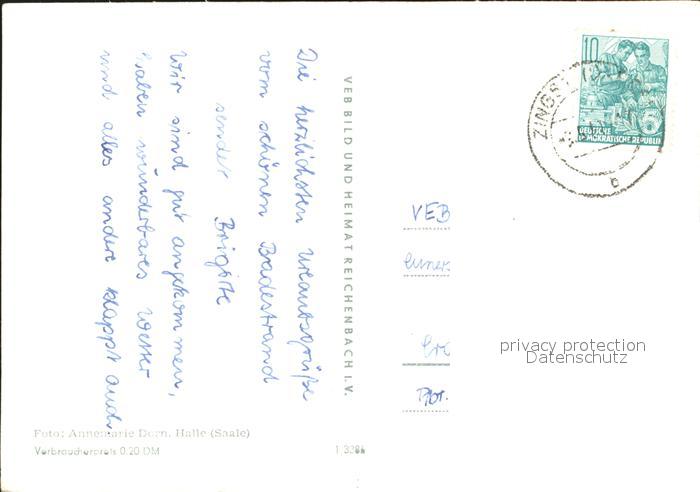 Die herzlichsten Urlaubsgrüße
vom schönen Badestrand
sendet Brigitte
Wir sind gut angekommen,
haben wunderbares Wetter
und alles andere klappt auch
VEB BILD UND HEIMAT REICHENBACH I. V.
10
DEUTSCHE
DEMOKRATISCHE REPUBLIK
ZINGST
c
VEB
privacy protection
Datenschutz
Foto: Annemarie Dorn, Halle (Saale)
Verbraucherpreis 0,20 DM